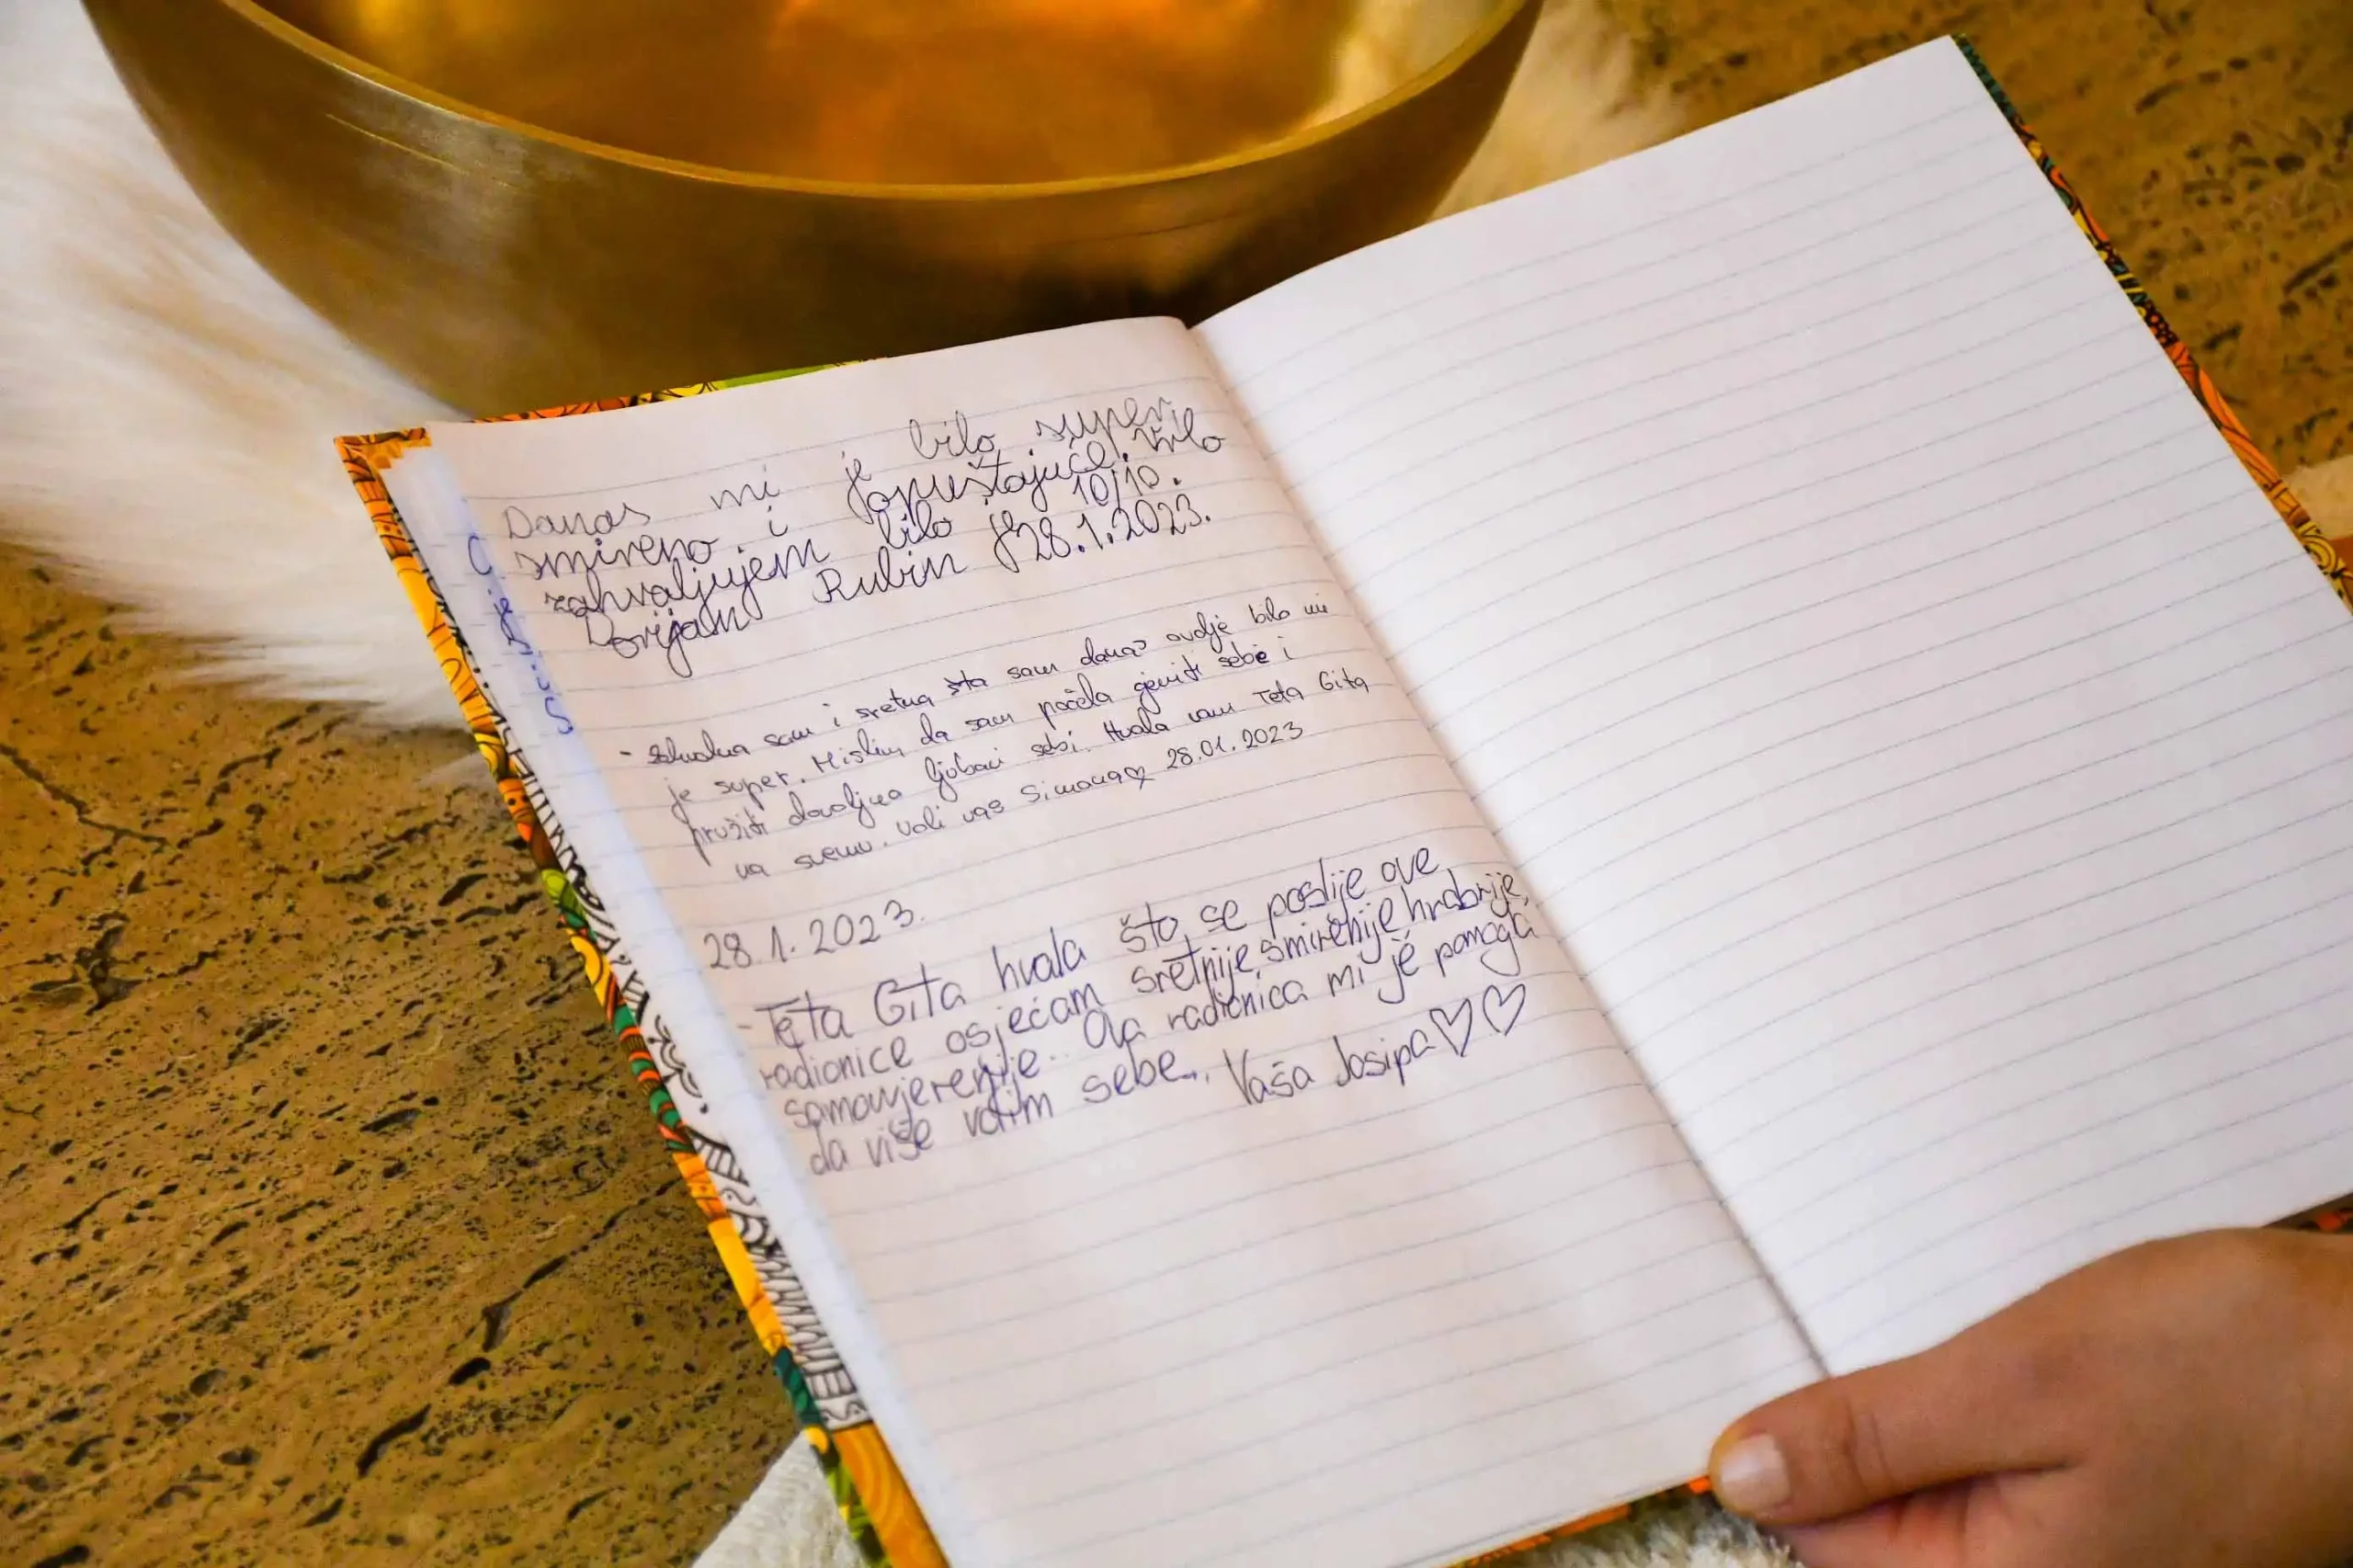 Danas mi je bilo super,
smireno i opuštajuće. Vrlo
zahvaljujem bilo je 10/10.
Dorijan Rubin 28.1.2023.
- Zahvalna sam i sretna šta sam danas ovdje bilo mi
je super. Mislim da sam počela cjeniti sebe i
pružiti dovoljno ljubavi sebi. Hvala vam Teta Gita
na svemu. Voli vas Simona♡ 28.01.2023
28.1.2023.
- Teta Gita hvala što se poslije ove
radionice osjećam sretnije, smirenije, hrabrije,
samouvjerenije.. Ova radionica mi je pomogla
da više volim sebe... Vaša Josipa♡♡